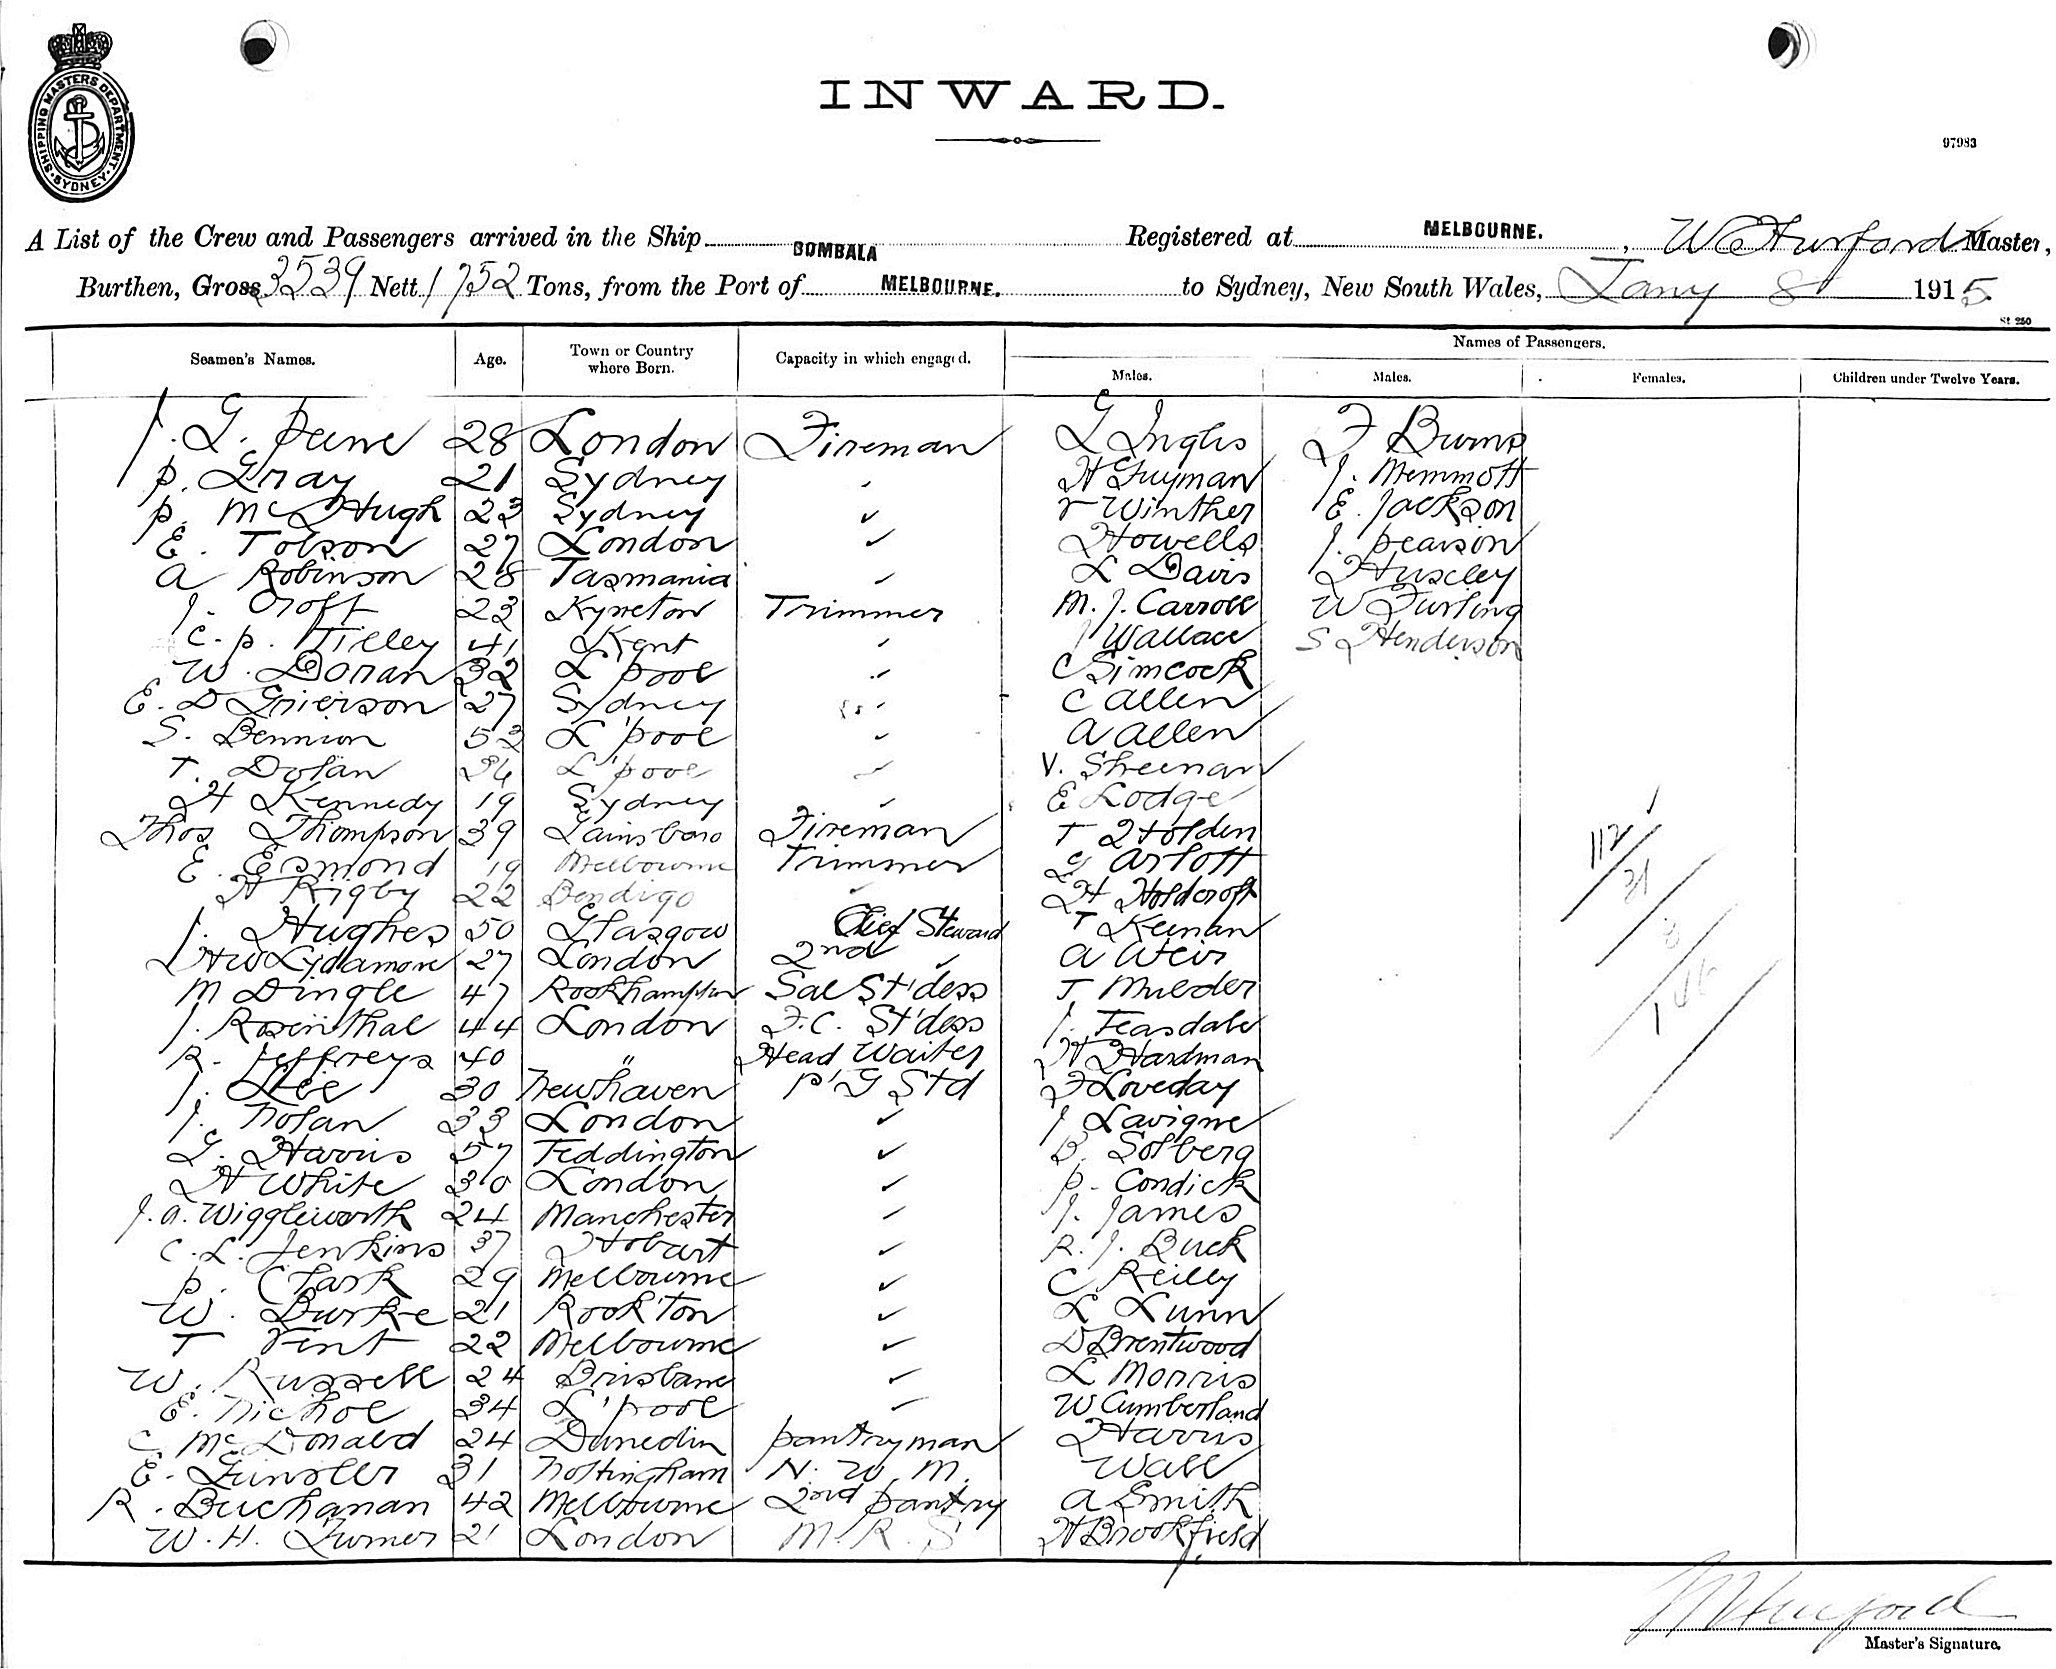 SHIPPING MASTERS DEPARTMENT. SYDNEY.
INWARD.
97983
A List of the Crew and Passengers arrived in the Ship BOMBALA Registered at MELBOURNE. , W C Hurford Master,
Burthen, Gross 3539 Nett 1752 Tons, from the Port of MELBOURNE. to Sydney, New South Wales, Jany 8 1915
St 250
Seamen's Names. Age. Town or Country where Born. Capacity in which engaged. Names of Passengers.
Males. Males. Females. Children under Twelve Years.
J. G. 28 London Fireman G Inglis F Burns
P. Gray 21 Sydney H Guyman J. Memmott
P. McHugh 23 Sydney Winther E. Jackson
E. Tolson 27 London Howells J. Pearson
A Robinson 28 Tasmania L Davis Huxley
J. Croft 23 Kyneton Trimmer M. J. Carroll W Furling
C. P. Tilley 41 Kent J Wallace S Henderson
W. Doran 32 L'pool C Simcock
E. D Grierson 27 Sydney C Allen
S. Bennion 53 L'pool A Allen
T. Dolan L'pool V. Sheenan
H Kennedy 19 Sydney E Lodge
Thos Thompson 39 Gainsboro Fireman T Holden
E. Esmond 19 Melbourne Trimmer G Arlott
H Rigby 22 Bendigo H Holdcroft
J. Hughes 50 Glasgow Chief Steward T Keenan
H W Lydamore 27 London 2nd A Weir
M Dingle 47 Rockhampton Sal St'dess T Mulder
J. Rosenthal 44 London F.C. St'dess J. Teasdale
R. Jeffreys 40 " Head Waiter H Hardman
J. Lee 30 Newhaven P'G Std F Loveday
J. Nolan 33 London J Lavigne
G. Harris 57 Teddington B. Solberg
H White 30 London P. Condick
J. A. Wiggleworth 24 Manchester J. James
C. L. Jenkins 37 Hobart R. J. Buck
P. Clark 29 Melbourne C Reilly
W. Burke 21 Rock'ton L Lunn
T Vent 22 Melbourne D Brentwood
W. Russell 24 Brisbane L Morris
E. Nichol 34 L'pool W Cumberland
C McDonald 24 Dunedin Pantryman Harris
E. 31 Nottingham N. W. M. Wall
R. Buchanan 42 Melbourne 2nd Pantry A Smith
W. H. Turner 21 London M. R. S H Brookfield
112
31
3
146
W C Hurford
Master's Signature.